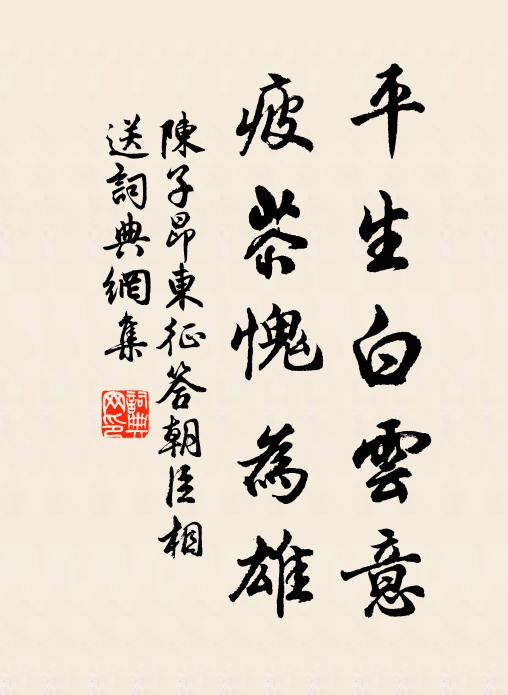 平生白雲意
疲苶愧為雄
陳子昂東征答朝臣相
送詞典網集
詞典
网印